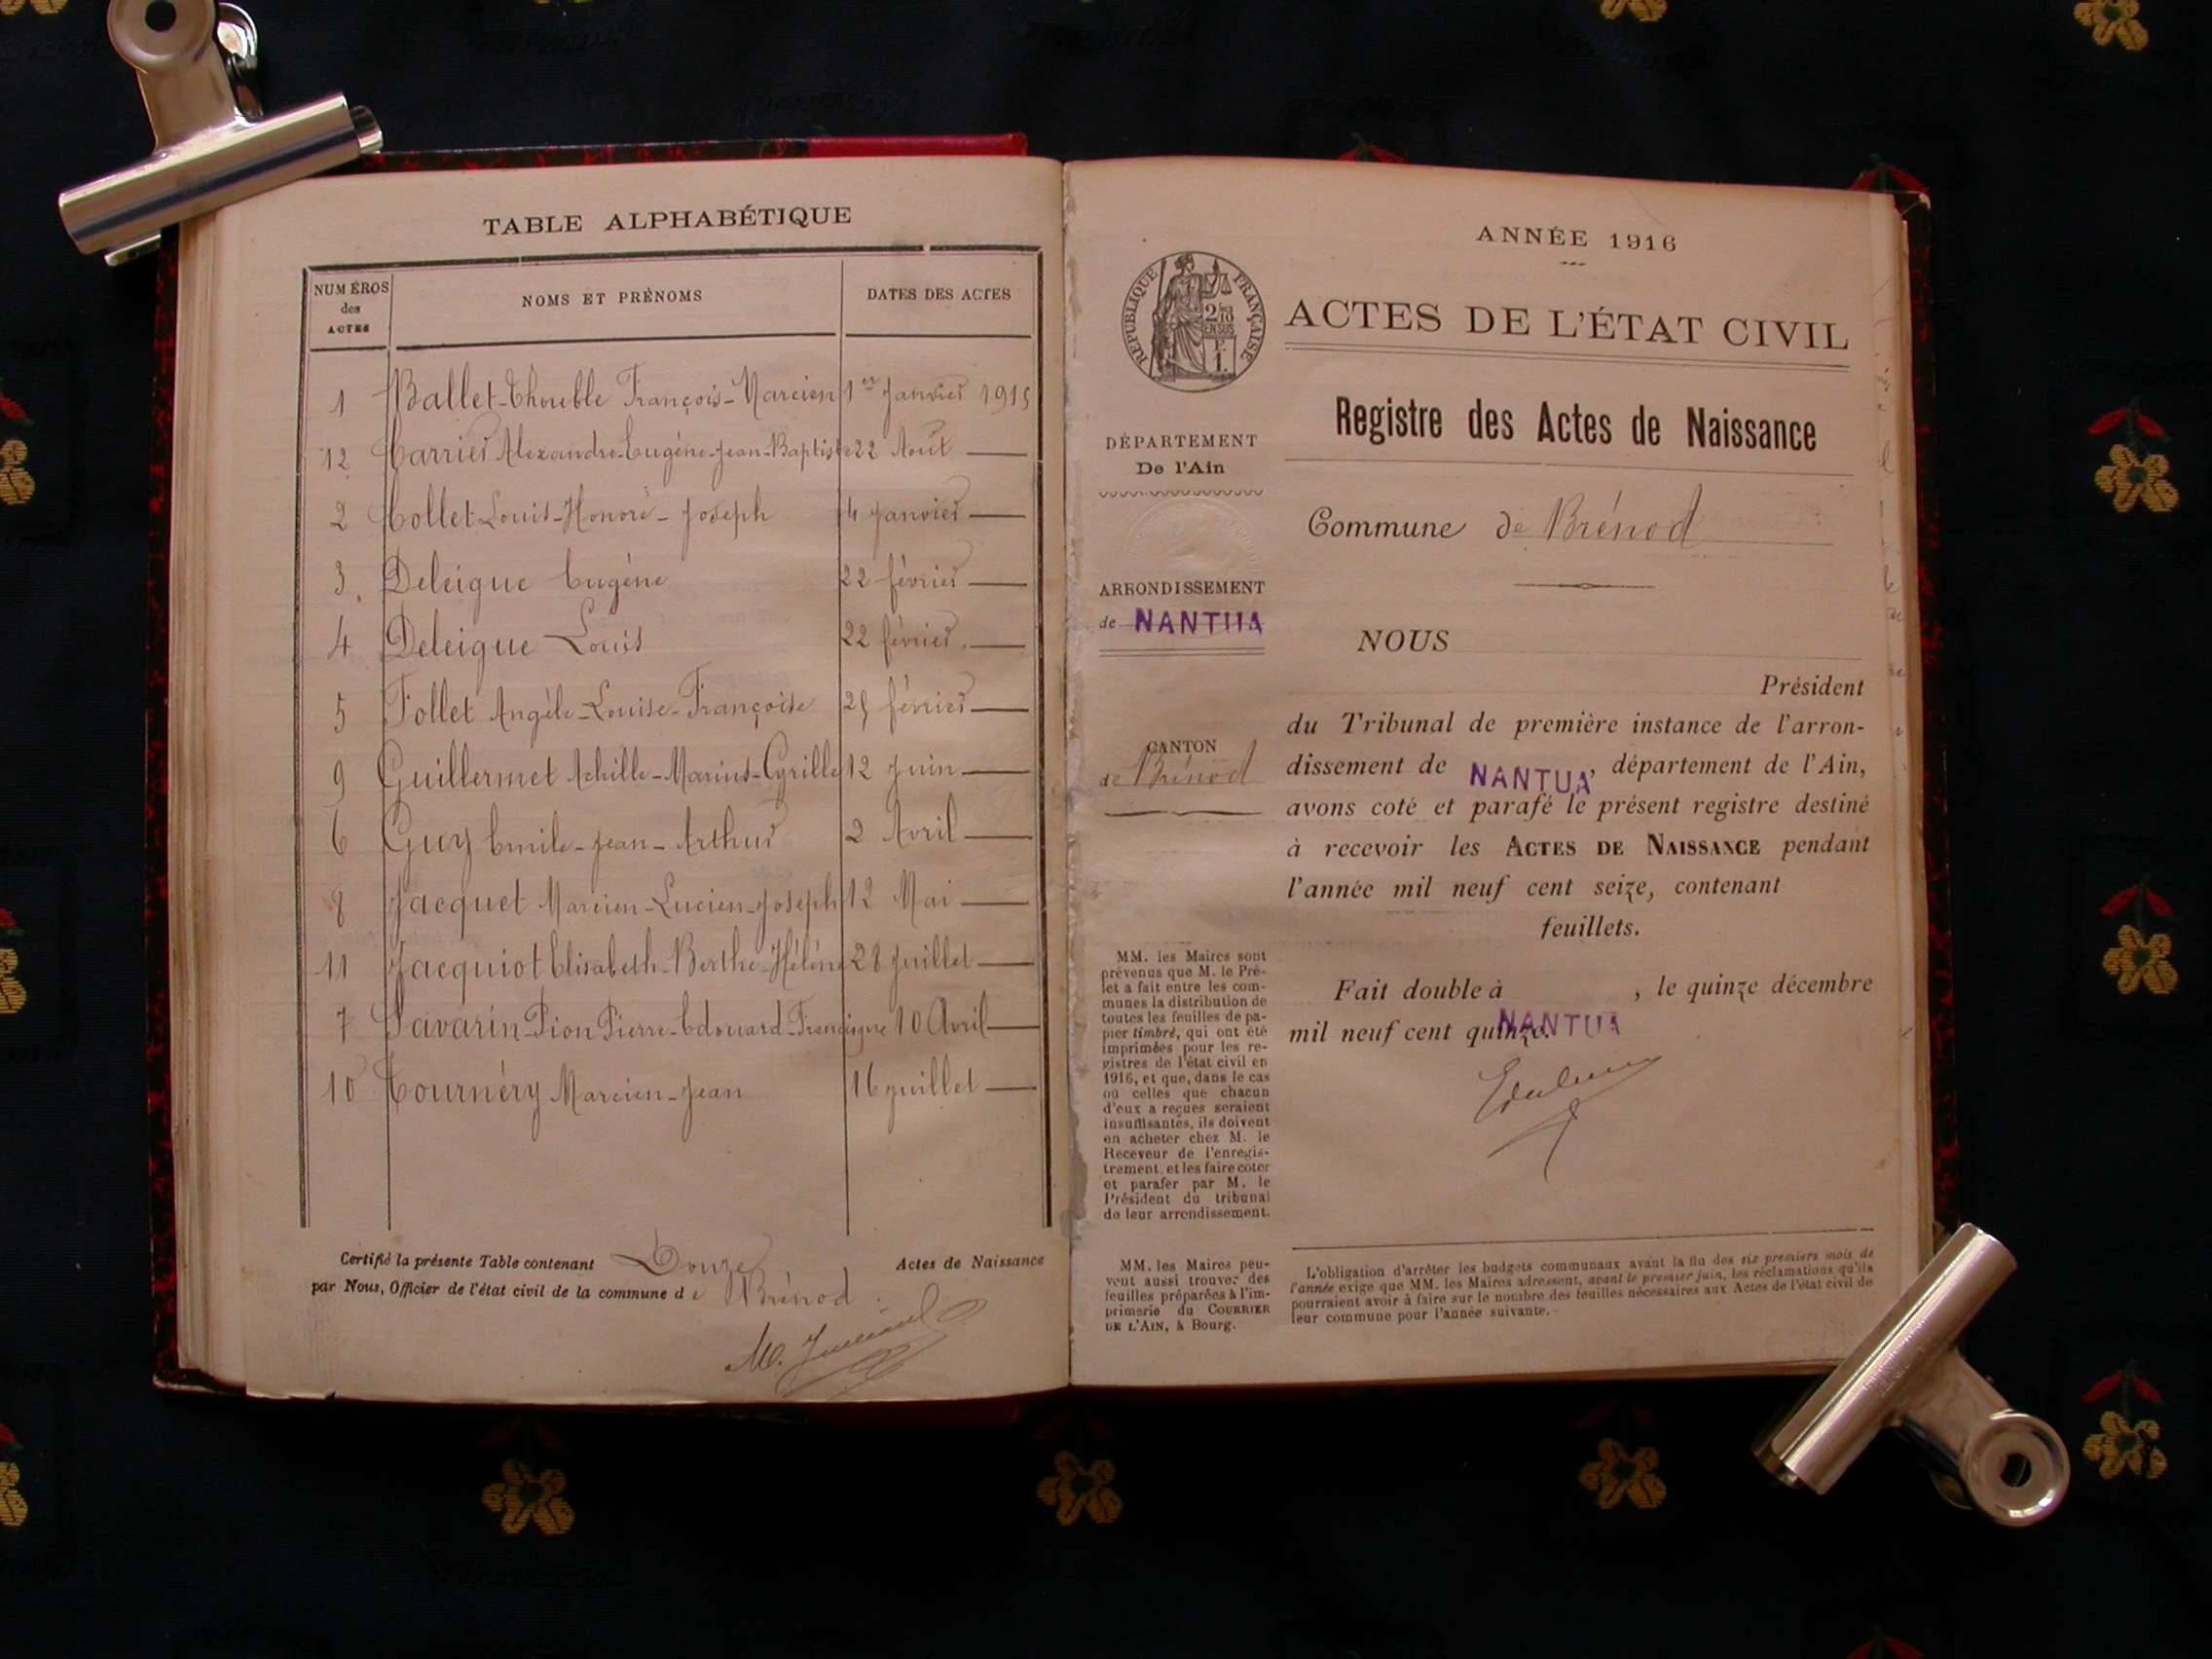 TABLE ALPHABÉTIQUE
NUMÉROS des ACTES NOMS ET PRÉNOMS DATES DES ACTES
1 Ballet-Thouble François-Marcien 1er Janvier 1915
12 Carrier Alexandre-Eugène-Jean-Baptiste 22 Août
2 Collet Louis-Honoré-Joseph 14 Janvier
3 Deleigue Eugène 22 février
4 Deleigue Louis 22 février
5 Follet Angèle-Louise-Françoise 25 février
9 Guillermet Achille-Marius-Cyrille 12 Juin
6 Guy Emile-Jean-Arthur 2 Avril
8 Jacquet Marcien-Lucien-Joseph 12 Mai
11 Jacquiot Elisabeth-Berthe-Hélène 28 Juillet
7 Savarin-Pion Pierre-Edouard 10 Avril
10 Tournéry Marcien-Jean 16 juillet
Certifié la présente Table contenant Douze Actes de Naissance
par Nous, Officier de l'état civil de la commune de Brénod
ANNÉE 1916
RÉPUBLIQUE FRANÇAISE
2/10 EN SUS
F. 1.
ACTES DE L'ÉTAT CIVIL
Registre des Actes de Naissance
DÉPARTEMENT
De l'Ain
Commune de Brénod
ARRONDISSEMENT
de NANTUA
CANTON
de Brénod
NOUS
Président
du Tribunal de première instance de l'arron-
dissement de NANTUA, département de l'Ain,
avons coté et parafé le présent registre destiné
à recevoir les ACTES DE NAISSANCE pendant
l'année mil neuf cent seize, contenant
feuillets.
Fait double à NANTUA, le quinze décembre
mil neuf cent quinze.
MM. les Maires sont
prévenus que M. le Pré-
fet a fait entre les com-
munes la distribution de
toutes les feuilles de pa-
pier timbré, qui ont été
imprimées pour les re-
gistres de l'état civil en
1916, et que, dans le cas
où celles que chacun
d'eux a reçues seraient
insuffisantes, ils doivent
en acheter chez M. le
Receveur de l'enregis-
trement, et les faire coter
et parafer par M. le
Président du tribunal
de leur arrondissement.
MM. les Maires peu-
vent aussi trouver des
feuilles préparées à l'im-
primerie du COURRIER
DE L'AIN, à Bourg.
L'obligation d'arrêter les budgets communaux avant la fin des six premiers mois de
l'année exige que MM. les Maires adressent, avant le premier juin, les réclamations qu'ils
pourraient avoir à faire sur le nombre des feuilles nécessaires aux Actes de l'état civil de
leur commune pour l'année suivante.